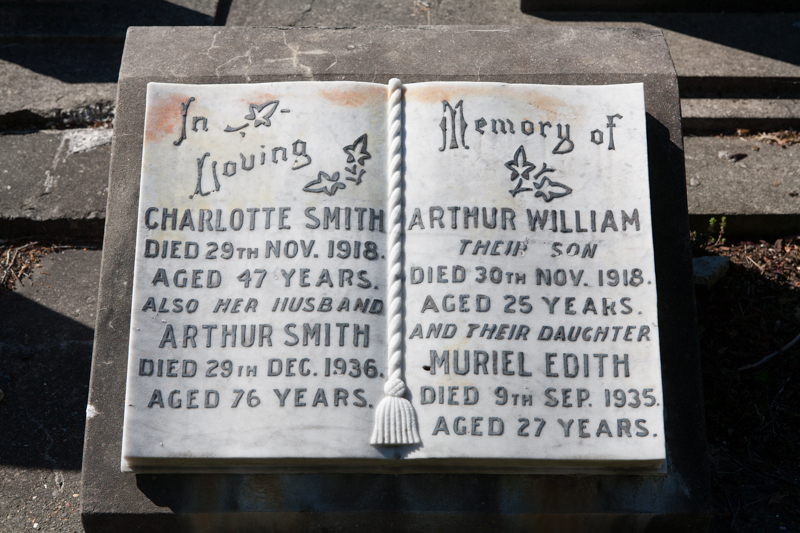 In
Loving
CHARLOTTE SMITH
DIED 29TH NOV. 1918.
AGED 47 YEARS.
ALSO HER HUSBAND
ARTHUR SMITH
DIED 29TH DEC. 1936.
AGED 76 YEARS.
Memory of
ARTHUR WILLIAM
THEIR SON
DIED 30TH NOV. 1918.
AGED 25 YEARS.
AND THEIR DAUGHTER
MURIEL EDITH
DIED 9TH SEP. 1935.
AGED 27 YEARS.